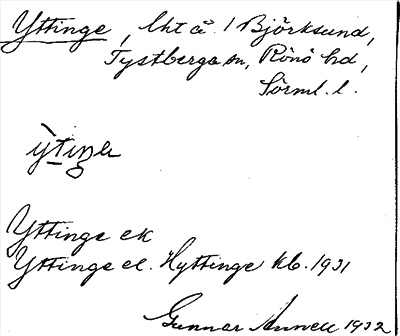 Yttinge, lht å 1 Björksund,
Tystberga sn, Rönö hd,
Sörml. l.
Yttinge ek
Yttinge el. Hyttinge kb. 1931
Gunnar 1932